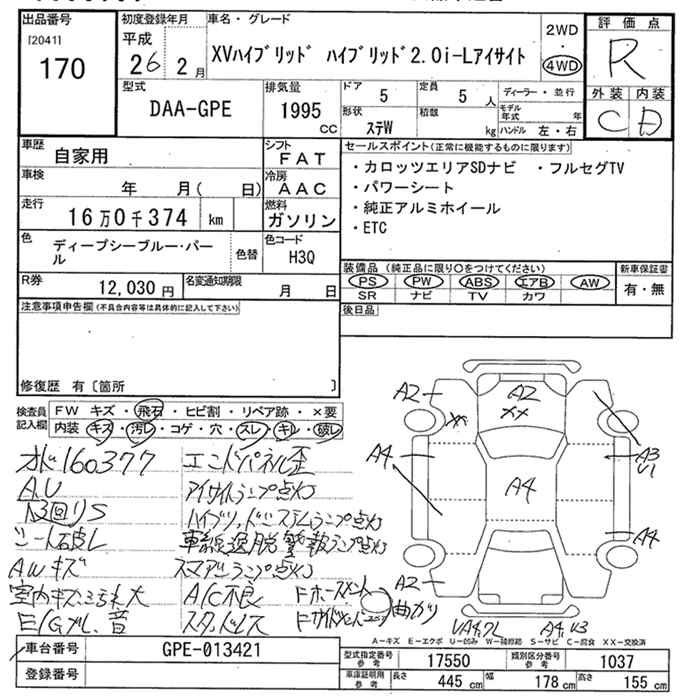 出品番号
[2041]
170
初度登録年月
平成
26 2月
車名・グレード
XVハイブリッド ハイブリッド2.0i-Lアイサイト
2WD
・
4WD
評価点
R
外装 内装
C D
型式
DAA-GPE
排気量
1995
cc
ドア
5
定員
5人
形状
ステW
積載
kg
ディーラー・並行
モデル年式 年
ハンドル 左・右
車歴
自家用
シフト
FAT
車検
年 月( 日)
冷房
AAC
走行
16万0千374 km
燃料
ガソリン
色
ディープシーブルー・パール
色替
色コード
H3Q
R券
12,030円
名変通知期限
月 日
セールスポイント(正常に機能するものに限ります)
・カロッツエリアSDナビ ・フルセグTV
・パワーシート
・純正アルミホイール
・ETC
装備品(純正品に限り〇をつけてください)
PS PW ABS エアB AW
SR ナビ TV カワ
新車保証書
有・無
後日品
注意事項申告欄(不具合内容等は具体的に記入して下さい)
修復歴 有〔箇所 〕
検査員記入欄
FW キズ・飛石・ヒビ割・リペア跡・×要
内装 キズ・汚レ・コゲ・穴・スレ・キレ・破レ
水160377
AU
シート破レ
AWキズ
室内キズ、汚れ大
E/G
エンドパネル歪
アイサイトランプ点灯
ハイブリッドシステムランプ点灯
車線逸脱警報ランプ点灯
ランプ点灯
A/C不良
スタッドレス
曲ガリ
A2
A2
XX
XX
A4
A4
A3
U1
A4
A2
A4, U3
A-キズ E-エクボ U-凹み W-補修跡 S-サビ C-腐食 XX-交換済
車台番号
GPE-013421
登録番号
型式指定番号
参考
17550
類別区分番号
参考
1037
車庫証明用
参考
長さ
445 cm
幅
178 cm
高さ
155 cm